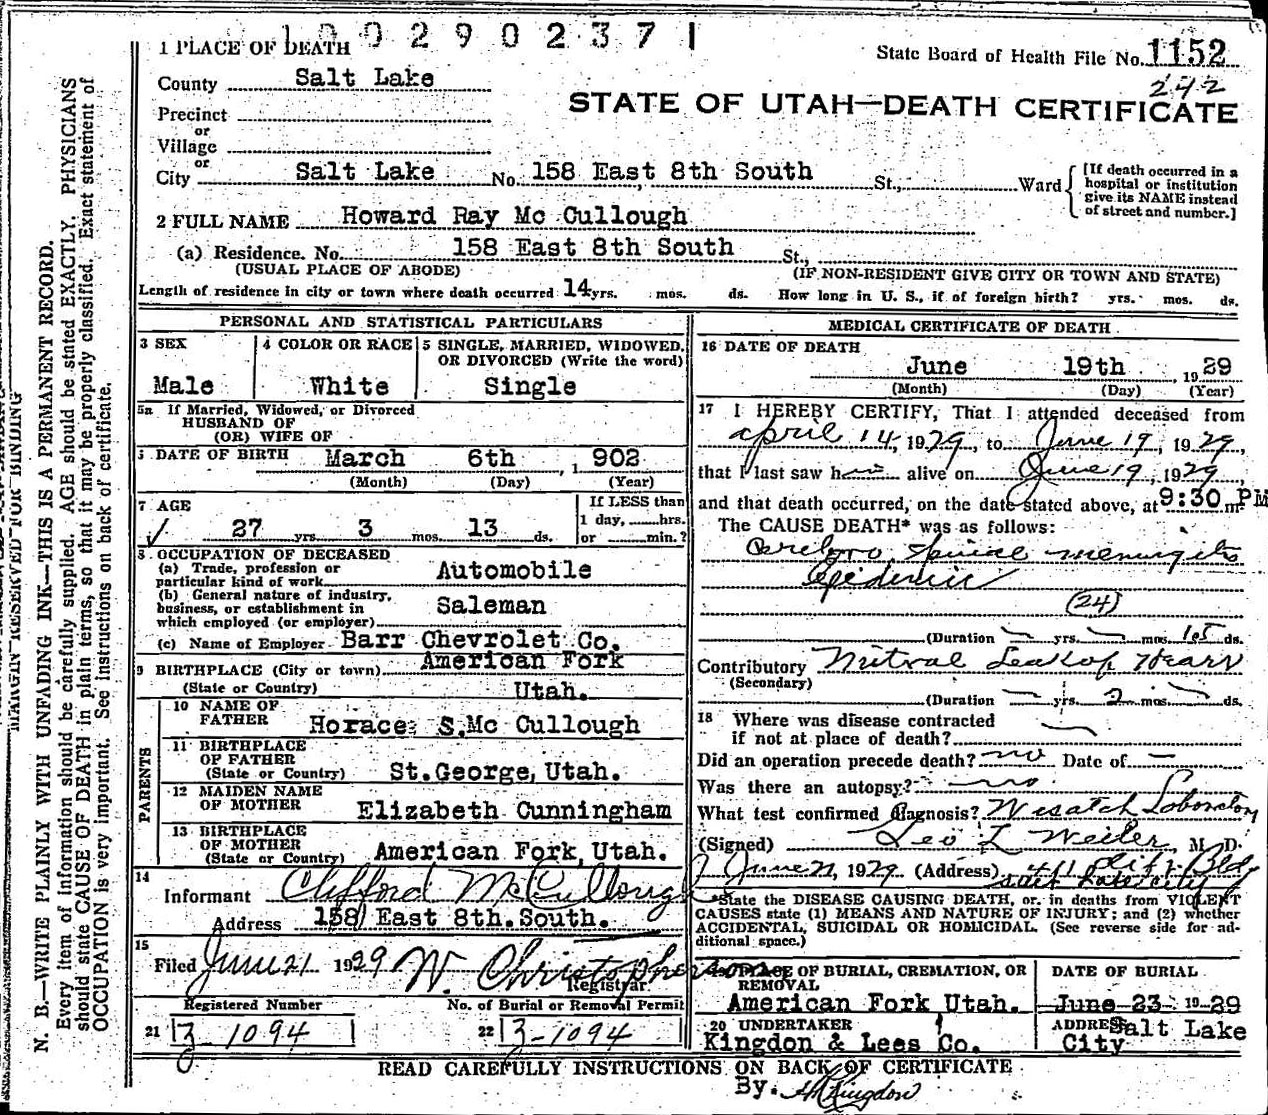 1002902371
State Board of Health File No. 1152
242
STATE OF UTAH—DEATH CERTIFICATE
1 PLACE OF DEATH
County Salt Lake
Precinct
or
Village
or
City Salt Lake No. 158 East 8th South St., Ward
[If death occurred in a
hospital or institution
give its NAME instead
of street and number.]
2 FULL NAME Howard Ray Mc Cullough
(a) Residence. No. 158 East 8th South St.,
(USUAL PLACE OF ABODE) (IF NON-RESIDENT GIVE CITY OR TOWN AND STATE)
Length of residence in city or town where death occurred 14 yrs. mos. ds. How long in U. S., if of foreign birth? yrs. mos. ds.
PERSONAL AND STATISTICAL PARTICULARS
3 SEX Male
4 COLOR OR RACE White
5 SINGLE, MARRIED, WIDOWED,
OR DIVORCED (Write the word)
Single
5a If Married, Widowed, or Divorced
HUSBAND OF
(OR) WIFE OF
DATE OF BIRTH March 6th, 1902
(Month) (Day) (Year)
7 AGE
27 yrs. 3 mos. 13 ds.
If LESS than
1 day, hrs.
or min.?
8 OCCUPATION OF DECEASED
(a) Trade, profession or
particular kind of work Automobile
(b) General nature of industry,
business, or establishment in
which employed (or employer) Saleman
(c) Name of Employer Barr Chevrolet Co.
9 BIRTHPLACE (City or town) American Fork
(State or Country) Utah.
PARENTS
10 NAME OF
FATHER Horace S. Mc Cullough
11 BIRTHPLACE
OF FATHER
(State or Country) St. George, Utah.
12 MAIDEN NAME
OF MOTHER Elizabeth Cunningham
13 BIRTHPLACE
OF MOTHER
(State or Country) American Fork, Utah.
14
Informant Clifford McCullough
Address 158 East 8th. South.
15
Filed June 21 1929 W. Christopherson
Registrar
Registered Number No. of Burial or Removal Permit
21 3-1094 22 3-1094
MEDICAL CERTIFICATE OF DEATH
16 DATE OF DEATH
June 19th, 1929
(Month) (Day) (Year)
17 I HEREBY CERTIFY, That I attended deceased from
April 14, 1929, to June 19, 1929,
that I last saw him alive on June 19, 1929,
and that death occurred, on the date stated above, at 9:30 PM m.
The CAUSE DEATH* was as follows:
Cerebro Spinal meningitis
Epidemic
(24)
(Duration yrs. mos. 105 ds.
Contributory Mitral Leak of Heart
(Secondary)
(Duration yrs. 2 mos. ds.
18 Where was disease contracted
if not at place of death?
Did an operation precede death? no Date of
Was there an autopsy? no
What test confirmed diagnosis? Wasatch Laboratory
(Signed) Leo L Weiler, M. D.
June 21, 1929 (Address) Bldg
Salt Lake City
*State the DISEASE CAUSING DEATH, or in deaths from VIOLENT
CAUSES state (1) MEANS AND NATURE OF INJURY; and (2) whether
ACCIDENTAL, SUICIDAL OR HOMICIDAL. (See reverse side for ad-
ditional space.)
19 PLACE OF BURIAL, CREMATION, OR
REMOVAL
American Fork Utah.
DATE OF BURIAL
June 23 1929
20 UNDERTAKER
Kingdon & Lees Co.
ADDRESS Salt Lake
City
READ CAREFULLY INSTRUCTIONS ON BACK OF CERTIFICATE
By. Kingdon
MARGIN RESERVED FOR BINDING
N. B.—WRITE PLAINLY WITH UNFADING INK—THIS IS A PERMANENT RECORD.
Every item of information should be carefully supplied. AGE should be stated EXACTLY. PHYSICIANS
should state CAUSE OF DEATH in plain terms, so that it may be properly classified. Exact statement of
OCCUPATION is very important. See instructions on back of certificate.